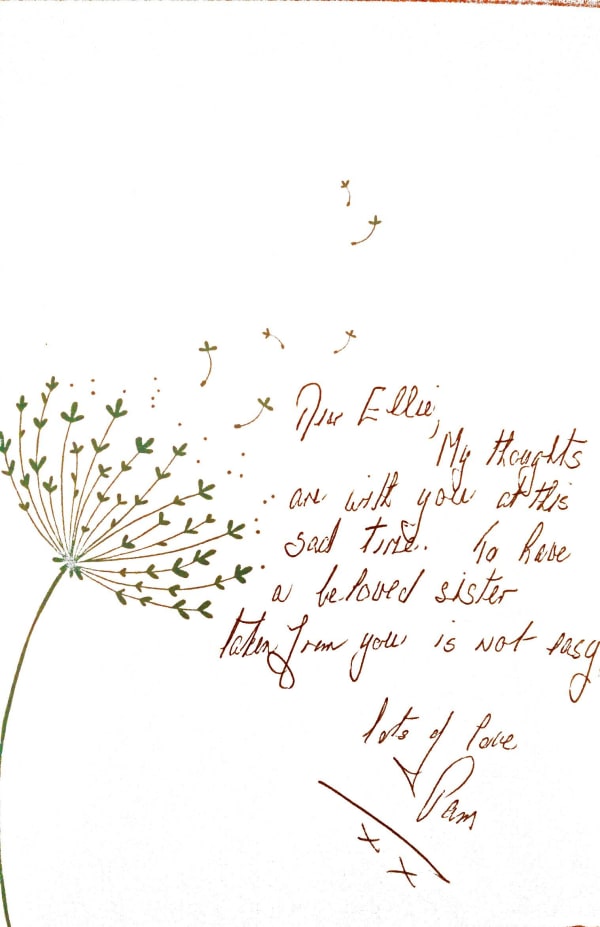 Dear Ellie,
My thoughts
are with you at this
sad time. To have
a beloved sister
taken from you is not easy
lots of love
Pam
x
x